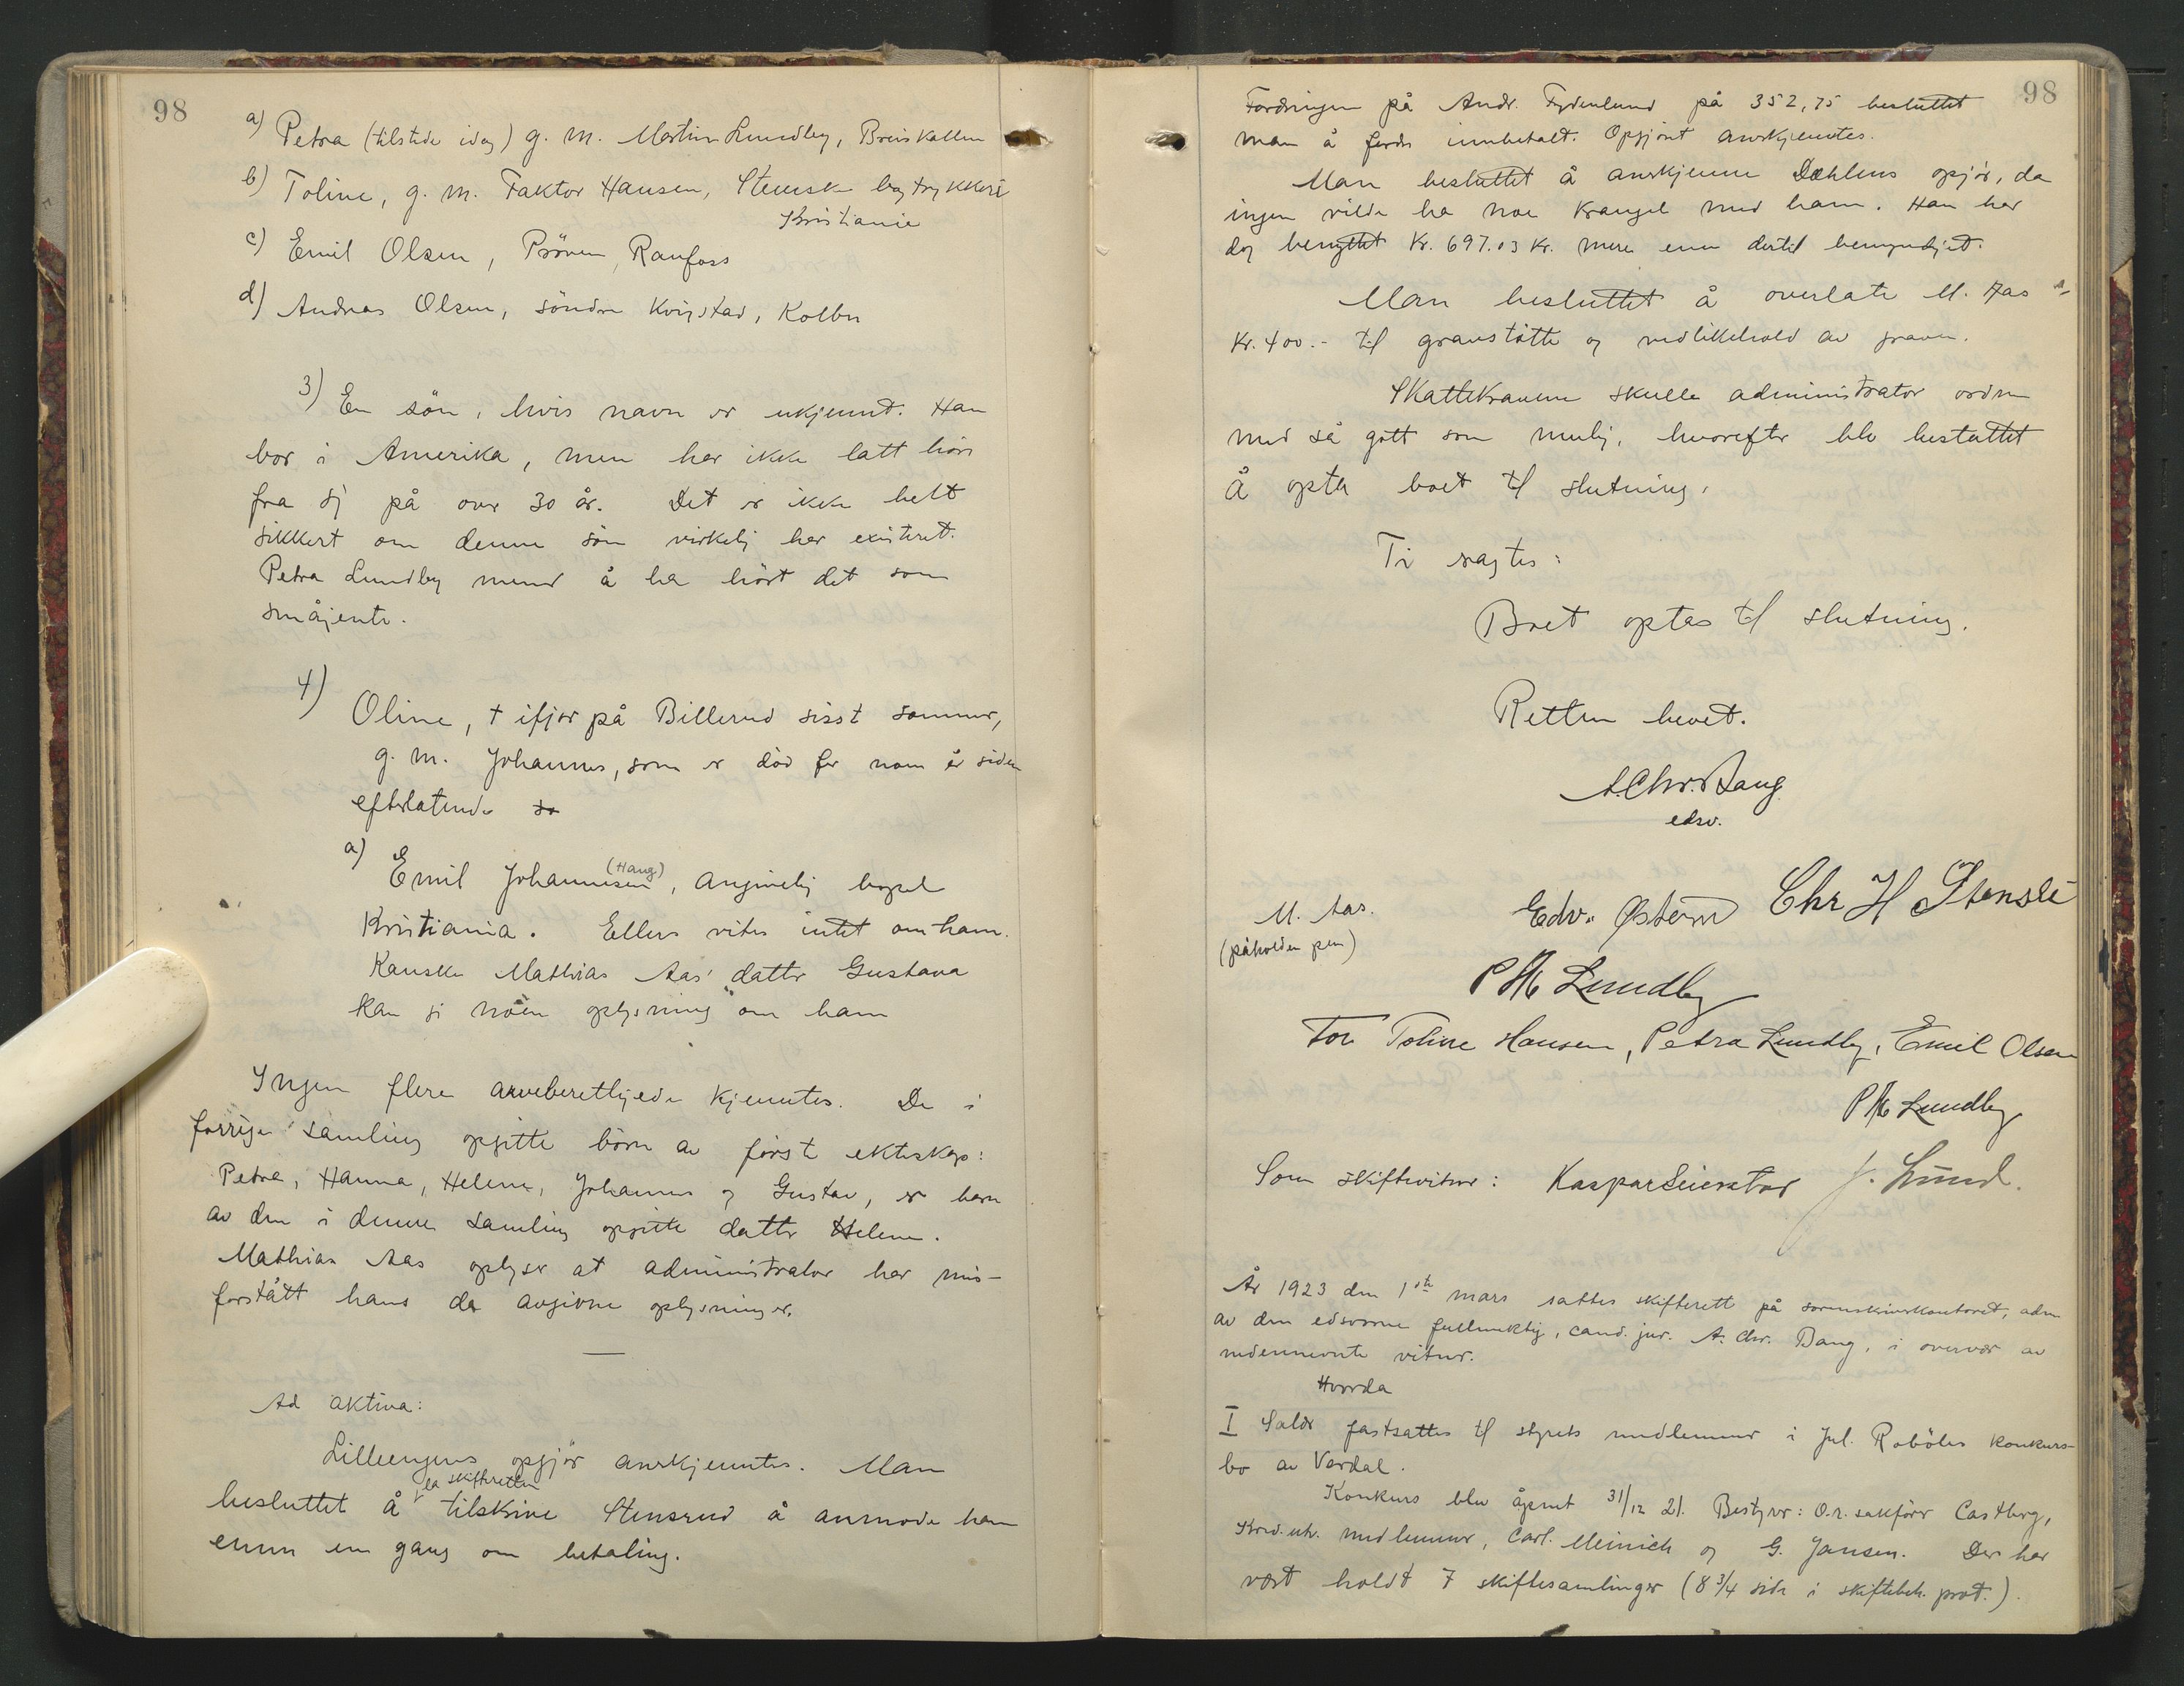 98
a) Petra (tilstede idag) g. m. Martin Lundby, Breiskallen
b) Toline, g. m. Faktor Hansen, Stenske bogtrykkeri
Kristiania
c) Emil Olsen, Pröven, Raufoss
d) Andreas Olsen, söndre Kvigstad, Kolbu
3) En sön, hvis navn er ukjennt. Han
bor i Amerika, men har ikke latt höre
fra sig på over 30 år. Det er ikke helt
sikkert om denne sön virkelig har existeret.
Petra Lundby mener å ha hört det som
småjente.
4) Oline, † ifjor på Billerud sisst sommer,
g. m. Johannes, som er död for noen år siden
efterlatende
a) Emil Johannesen (Haug), angivelig bopel
Kristiania. Ellers vites intet om ham.
Kanske Mathias Aas' datter Gustava
kan gi noen oplysning om ham
Ingen flere arveberettigede kjenntes. De i
forrige samling opgitte börn av förste ekteskap:
Petra, Hanna, Helene, Johannes og Gustav, er barn
av den i denne samling opgitte datter Helene.
Mathias Aas oplyser at administrator har mis-
forstått hans da avgivne oplysninger.
Ad aktiva:
Lilleengens opgjör anerkjenntes. Man
besluttet å la skifteretten tilskrive Stensrud å anmode ham
ennu en gang om betaling.
98
Fordringen på Andr. Fydenlund på 352,75 besluttet
man å fordre innbetalt. Opgjöret anerkjenntes.
Man besluttet å anerkjenne Dæhlens opgjör, da
ingen vilde ha noe krangel med ham. Han har
dog benyttet Kr. 697.03 Kr. mere enn dertil bemyndiget.
Man besluttet å overlate M. Aas
Kr. 400.- til gravstötte og vedlikehold av graven.
Skattekravene skulle administrator ordne
med så gott som mulig, hvorefter blev besluttet
å opta boet til slutning.
Ti sagtes:
Boet optas til slutning.
Retten hevet.
A. Chr. Bang
edsv.
M. Aas.
(påholden pen)
Edv. Østern Chr H Stensli
P M Lundby
For Toline Hansen, Petra Lundby, Emil Olsen
P M Lundby
Som skiftevitner: Kaspar Seierstad J. Lund.
År 1923 den 1ste mars sattes skifterett på sorenskriverkontoret, adm
av den edsvorne fullmektig, cand. jur. A. Chr. Bang, i overvær av
nedennevnte vitner.
Hvorda
I Salær fastsattes til styrets medlemmer i Jul. Roböles konkurs-
bo av Vardal.
Konkurs blev åpnet 31/12 21. Bestyrer: O.r. sakförer Castberg,
Kred.utv. medlemmer, Carl. Meinich og G. Jansen. Der har
vært holdt 7 skiftesamlinger (8 3/4 side i skiftebeh. prot.).